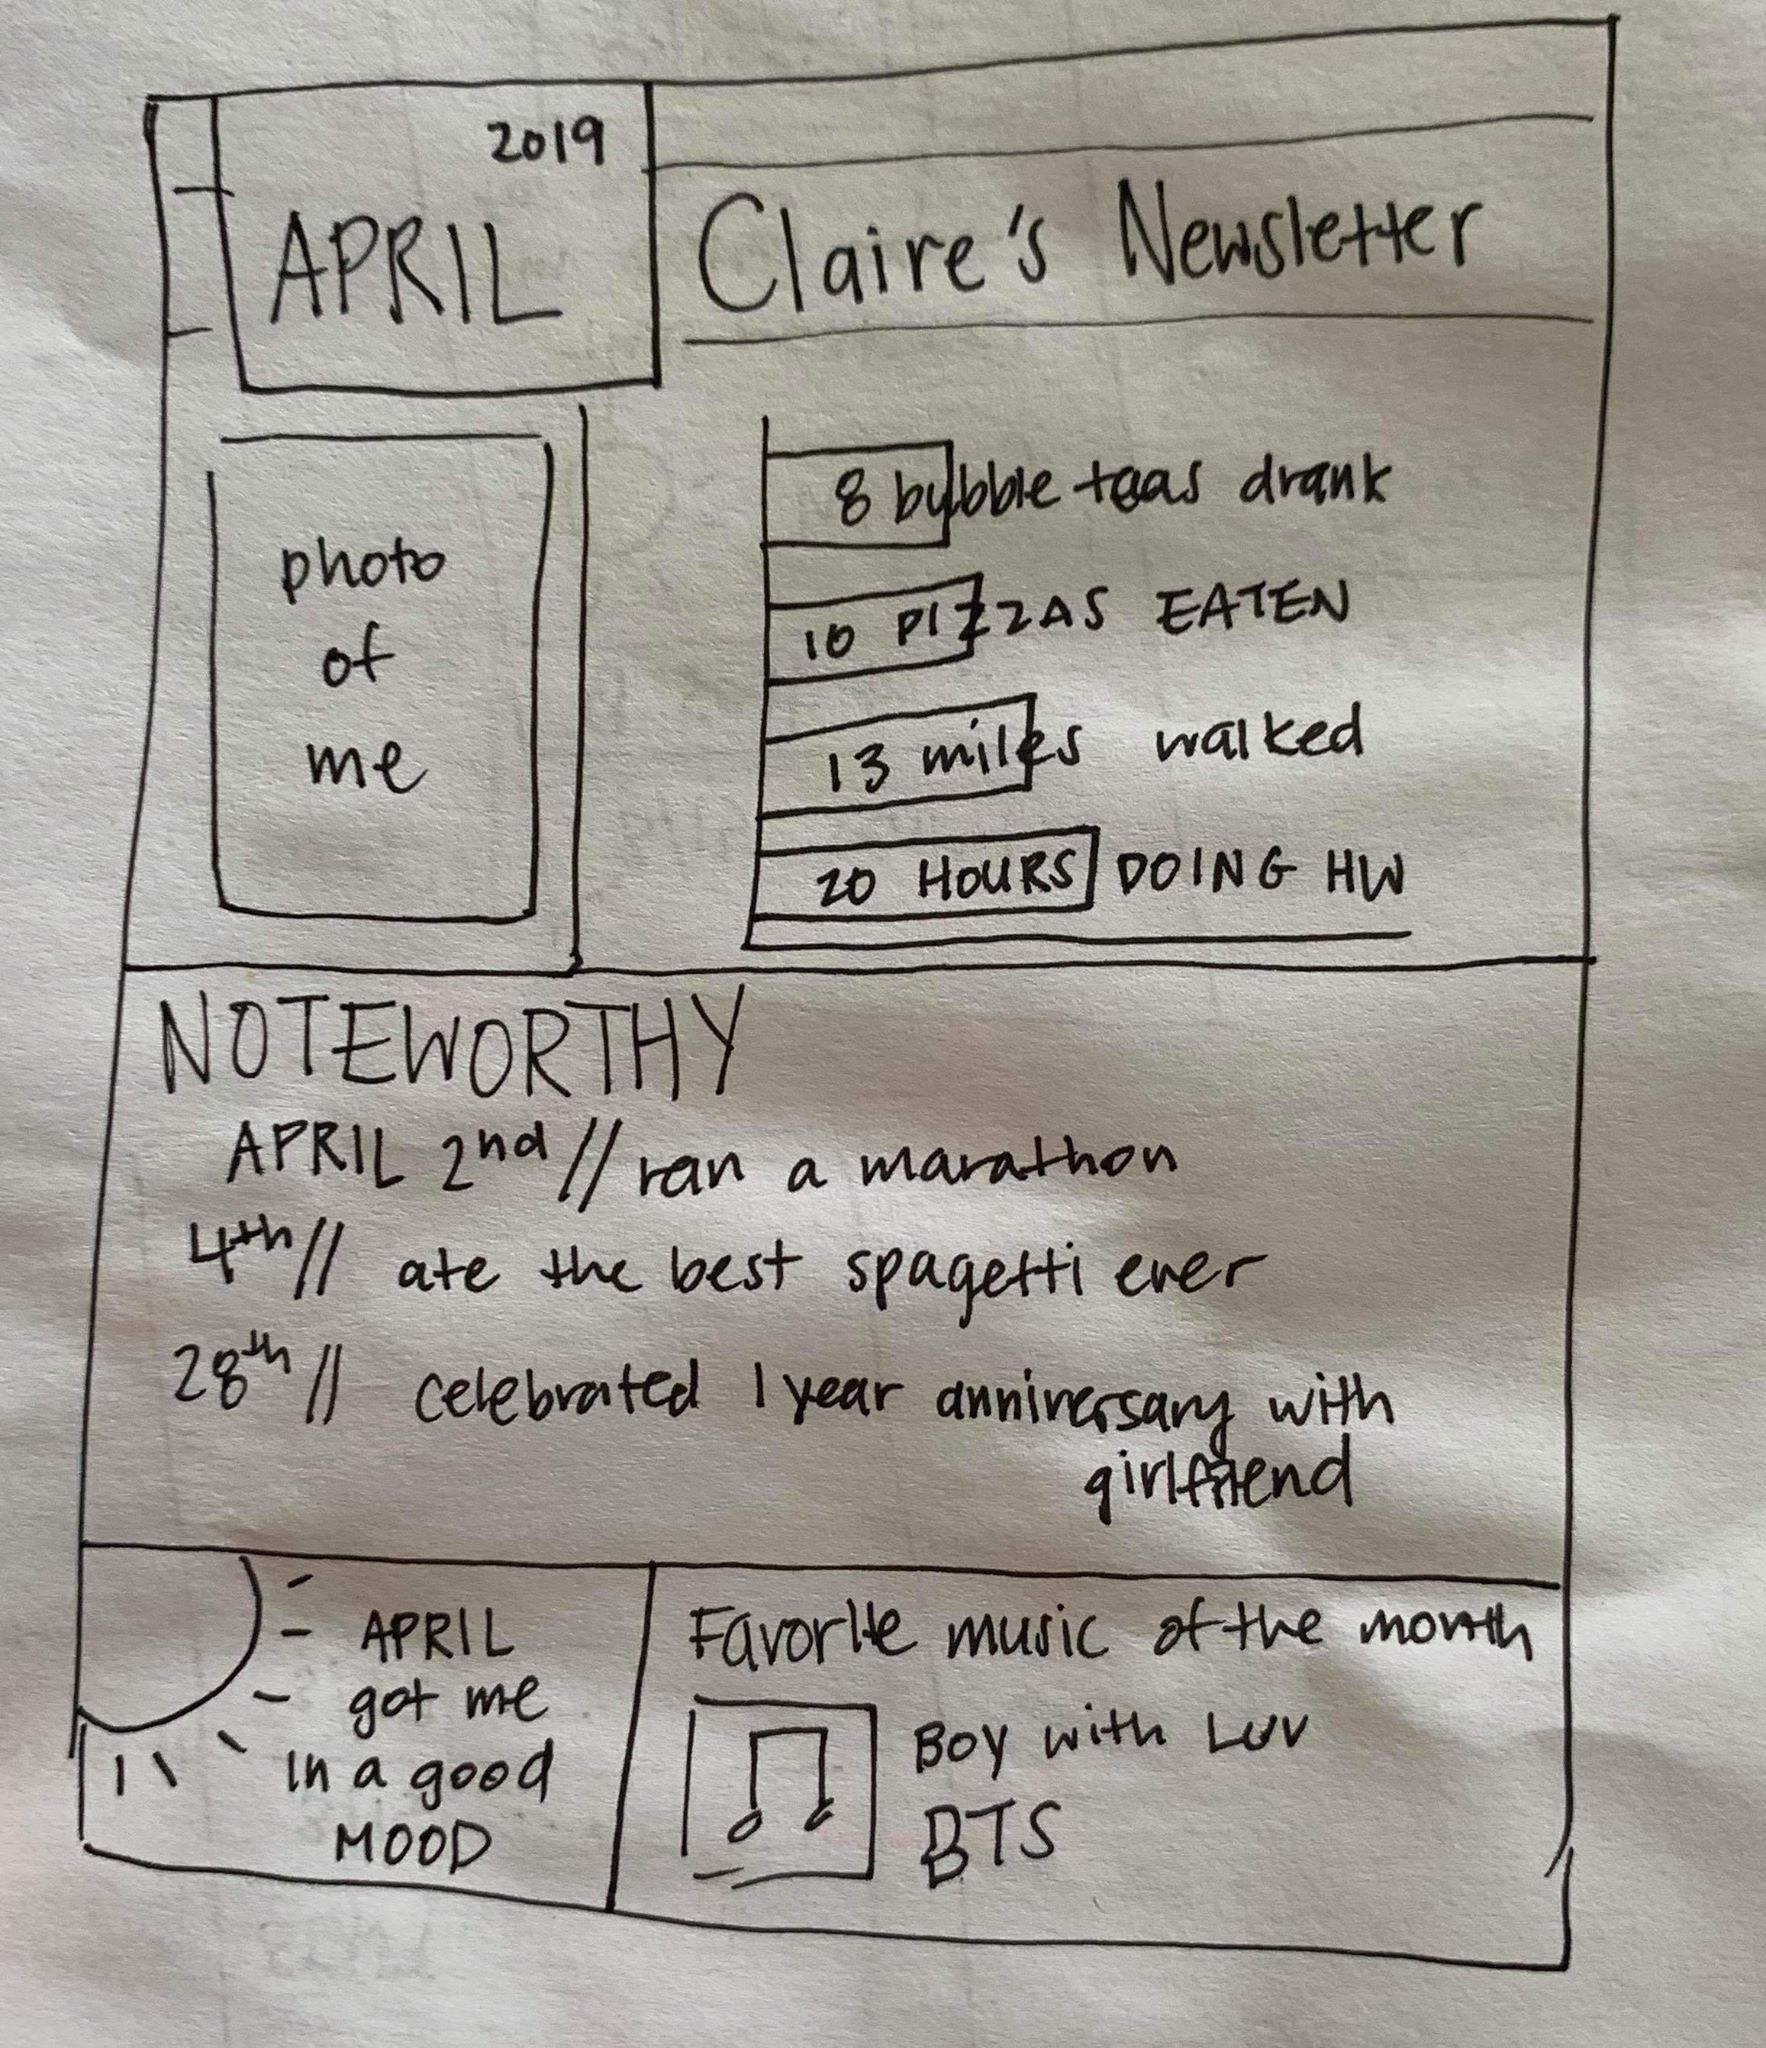 2019
APRIL
Claire's Newsletter
photo
of
me
8 bubble teas drank
10 PIZZAS EATEN
13 miles walked
20 HOURS DOING HW
NOTEWORTHY
APRIL 2nd // ran a marathon
4th // ate the best spagetti ever
28th // celebrated 1 year anniversary with
girlfriend
APRIL
got me
in a good
MOOD
Favorite music of the month
Boy with Luv
BTS